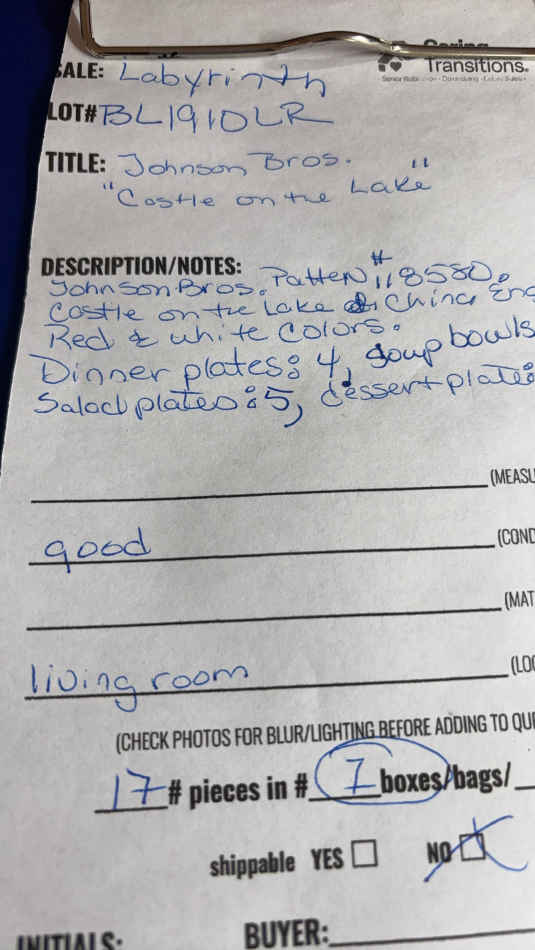 Caring
Transitions.
SALE: Labyrinth
LOT# BL1910LR
TITLE: Johnson Bros.
"Castle on the Lake"
DESCRIPTION/NOTES:
Johnson Bros. Pattern # 118580.
Castle on the Lake China Eng
Red & white Colors.
Dinner plates: 4, soup bowls
Salad plates: 5, dessert plate
(MEASU
good (COND
(MAT
living room (LO
(CHECK PHOTOS FOR BLUR/LIGHTING BEFORE ADDING TO QU
17 # pieces in # 1 boxes/bags/
shippable YES NO
INITIALS: BUYER: